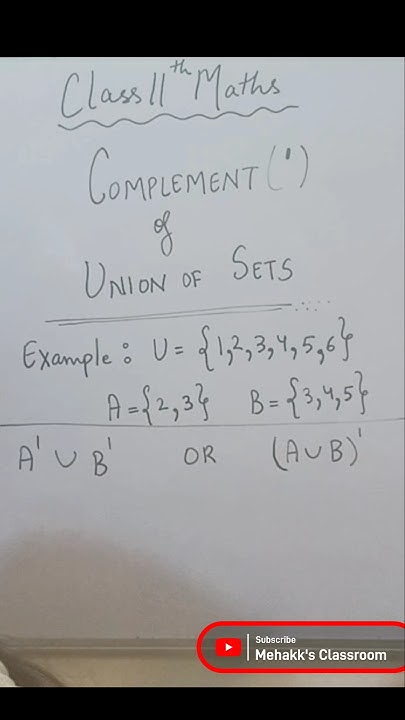 Class 11th Maths
COMPLEMENT (')
of
UNION OF SETS
Example: U = {1,2,3,4,5,6}
A = {2,3} B = {3,4,5}
A' ∪ B' OR (A∪B)'
Subscribe
Mehakk's Classroom